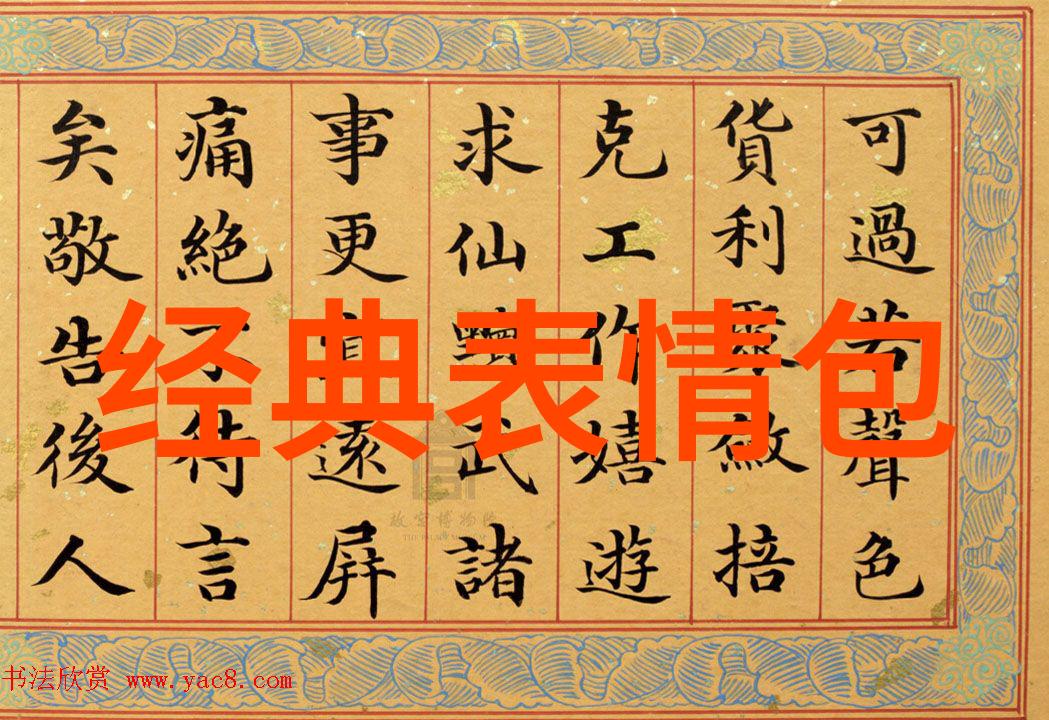 可過若聲色
貨利聚斂掊
克工作嬉遊
求仙黷武諸
事更宜遠屏
痛絕不待言
矣敬告後人
经典表情包
故宫博物院
THE PALACE MUSEUM
书法欣赏 www.yac8.com